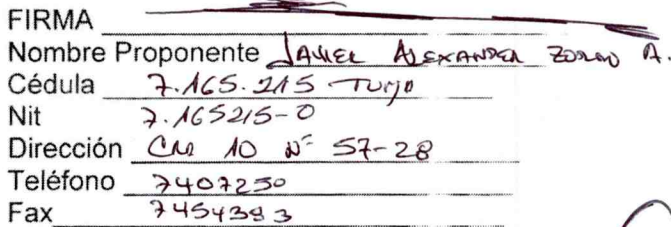 FIRMA
Nombre Proponente JAVIER ALEXANDER ZORRO A.
Cédula 7.165.215 Tunja
Nit 7.165215-0
Dirección CRA 10 Nº 57-28
Teléfono 7407250
Fax 7454393